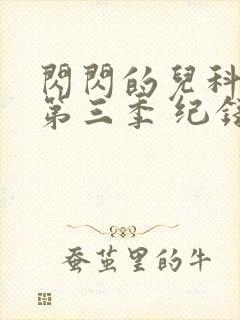 閃閃的兒科
第三季 纪
蚕茧里的牛